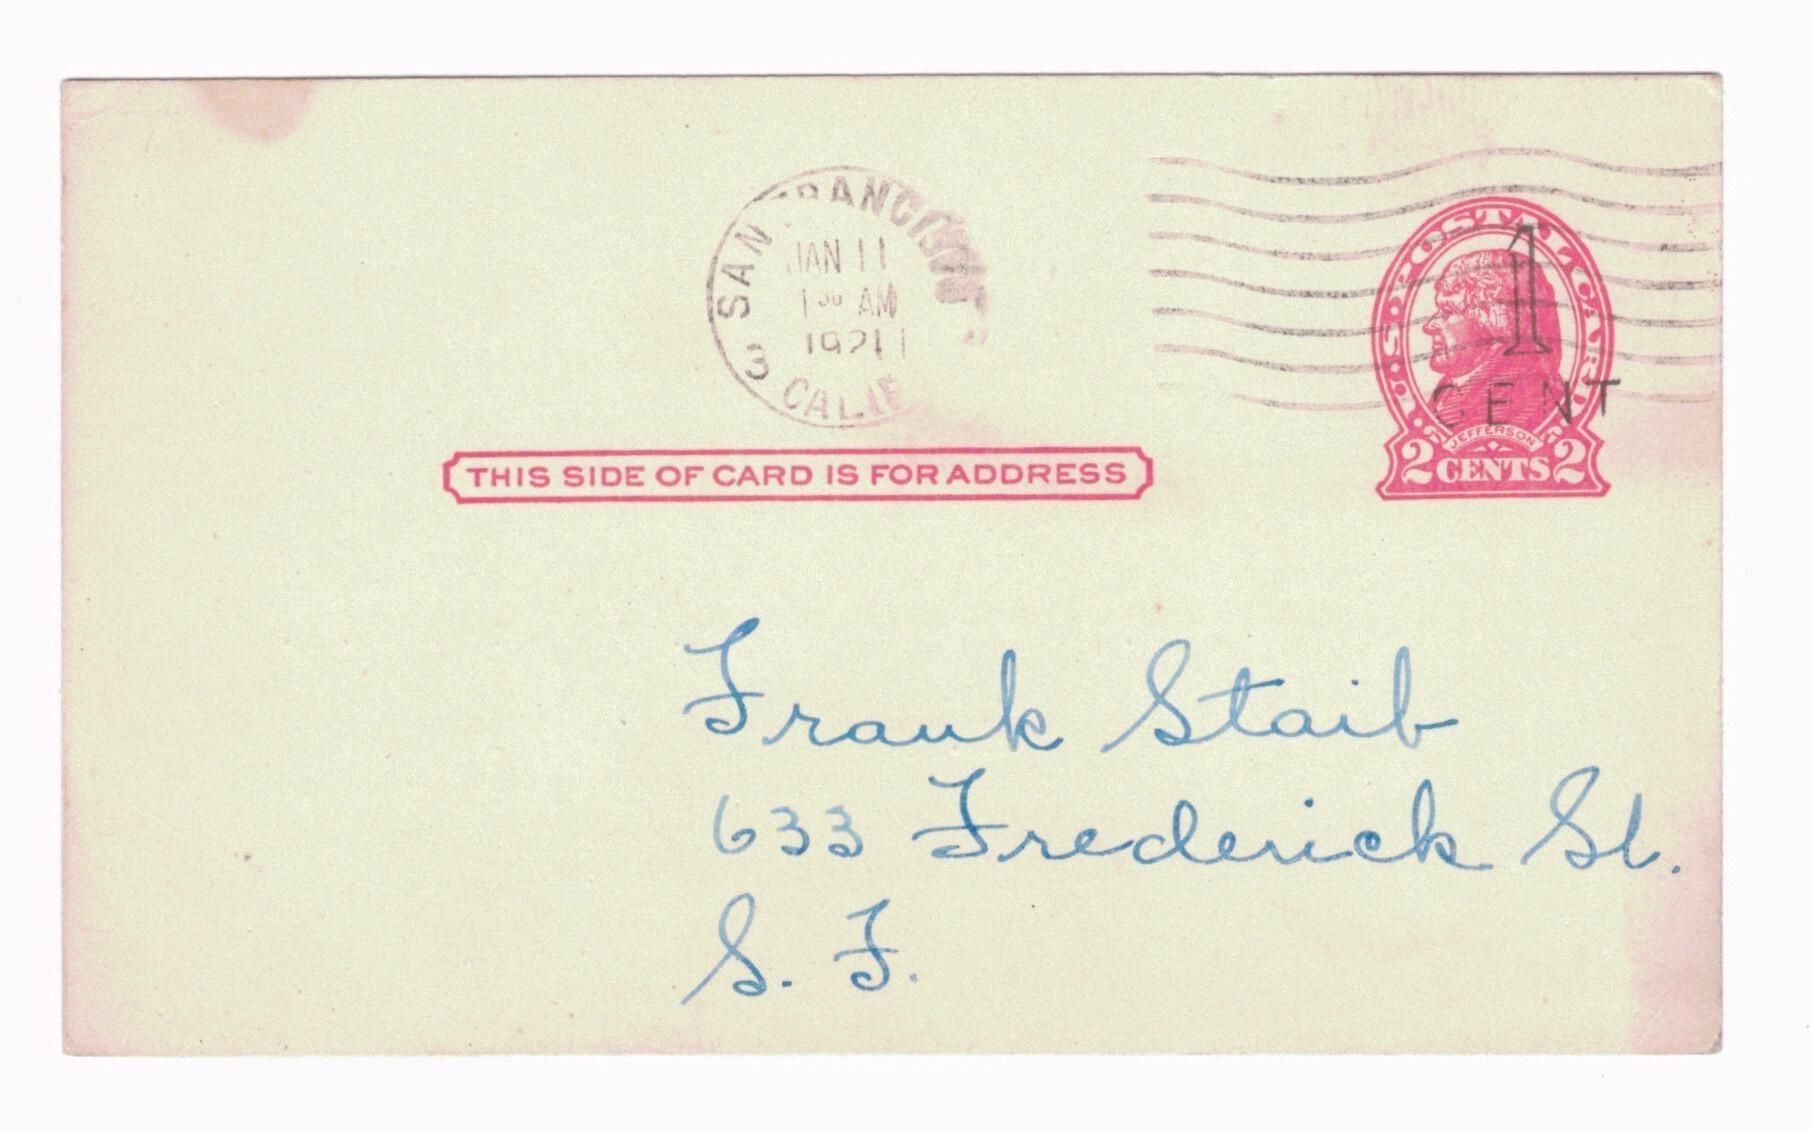 SAN FRANCISCO
JAN 11
1 30 AM
1921
3 CALIF
U.S. POSTAL CARD
1
CENT
JEFFERSON
2 CENTS 2
THIS SIDE OF CARD IS FOR ADDRESS
Frank Staib
633 Frederick St.
S. F.